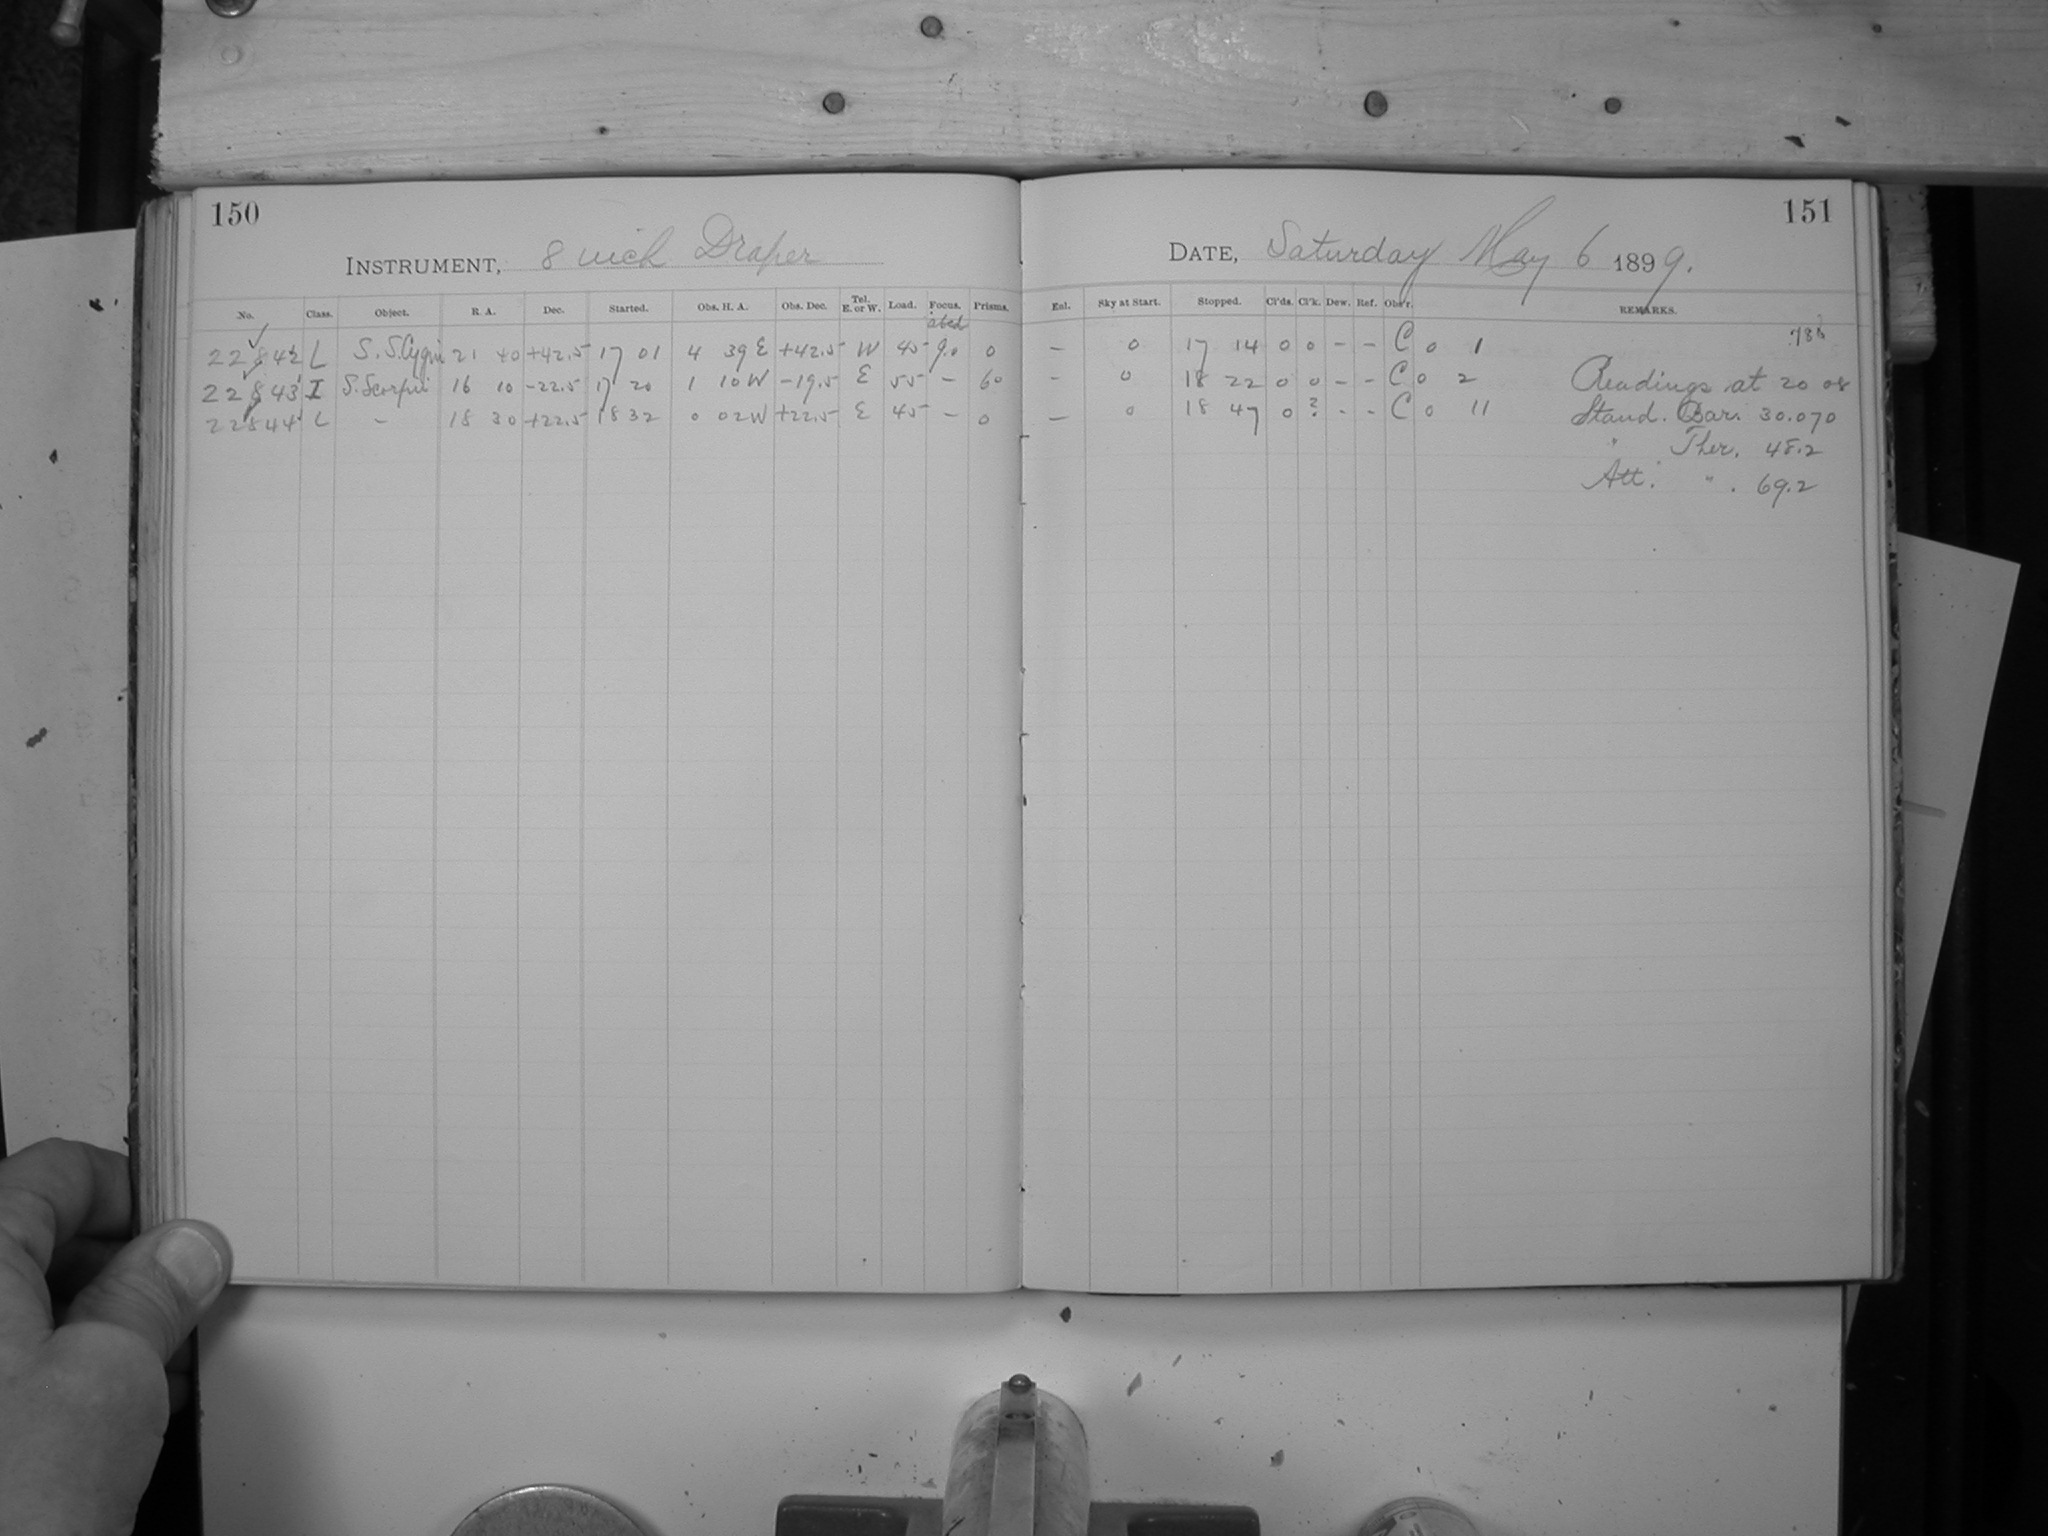 150
INSTRUMENT, 8 inch Draper
No. Class. Object. R. A. Dec. Started. Obs. H. A. Obs. Dec. Tel. E. or W. Load. Focus. Prisms.
abcd
22842 L S. S. Cygni 21 40 +42.5 17 01 4 39 E +42.5 W 45 9.0 0
22843 I S. Scorpii 16 10 -22.5 17 20 1 10 W -19.5 E 55 - 60
22844 L - 18 30 +22.5 18 32 0 02 W +22.5 E 45 - 0
151
DATE, Saturday May 6 1899.
Enl. Sky at Start. Stopped. Cl'ds. Cl'k. Dew. Ref. Obs'r. REMARKS.
- 0 17 14 0 0 - - C 0 1
- 0 18 22 0 0 - - C 0 2 Readings at 20 08
- 0 18 47 0 ? - - C 0 11 Stand. Bar. 30.070
" Ther. 48.2
Att. " . 69.2